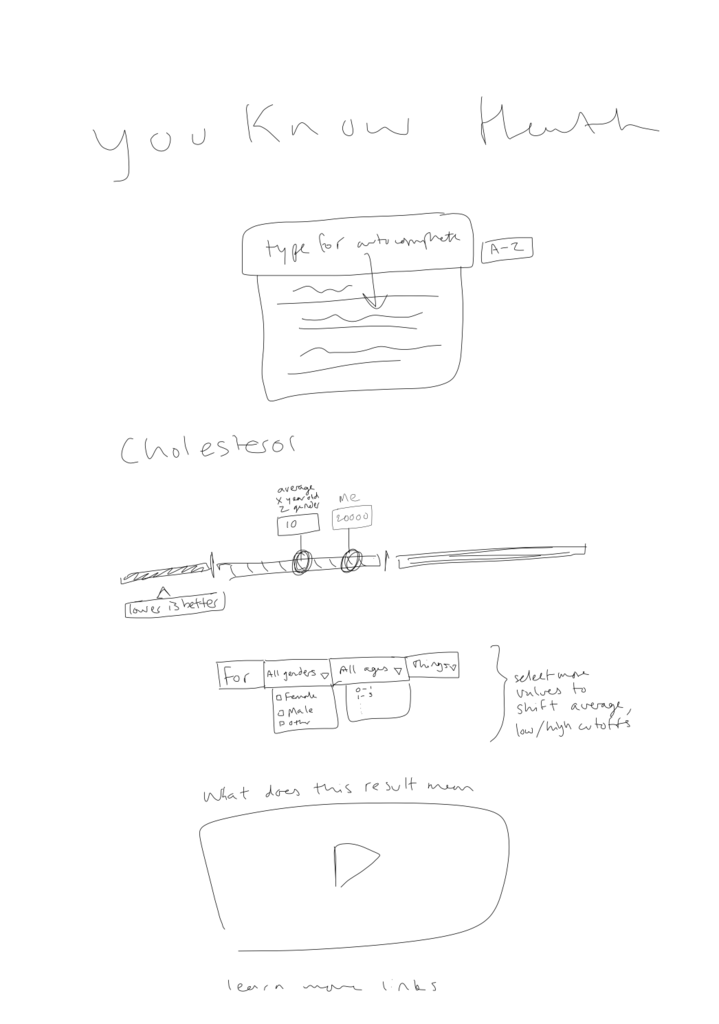 you Know Health
type for autocomplete
A-Z
Cholesterol
average
x year old
z gender
10
me
20000
lower is better
For
All genders
Female
Male
other
All ages
0-1
1-3
things
select more
values to
shift average,
low/high cutoffs
What does this result mean
learn more links